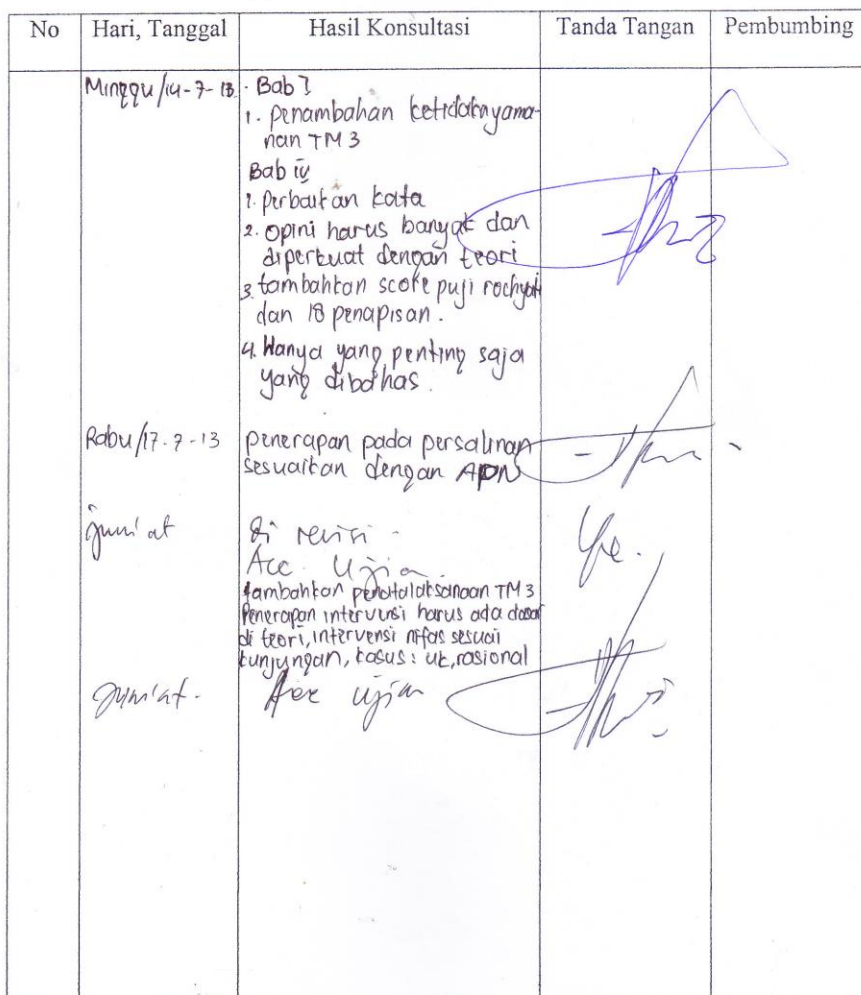 No Hari, Tanggal Hasil Konsultasi Tanda Tangan Pembumbing
Minggu/14-7-13 - Bab I
1. penambahan ketidaknyama-
nan TM 3
Bab iv
1. Perbaikan kata
2. opini harus banyak dan
diperkuat dengan teori
3. tambahkan score puji rochyati
dan 18 penapisan.
4. Hanya yang penting saja
yang dibahas.
Rabu/17-7-13 penerapan pada persalinan
sesuaikan dengan APN
Jum'at di revisi -
Acc Ujian
tambahkan penatalaksanaan TM 3
Penerapan intervensi harus ada dasar
di teori, intervensi nifas sesuai
kunjungan, kasus: uk, rasional
Jum'at. Acc ujian